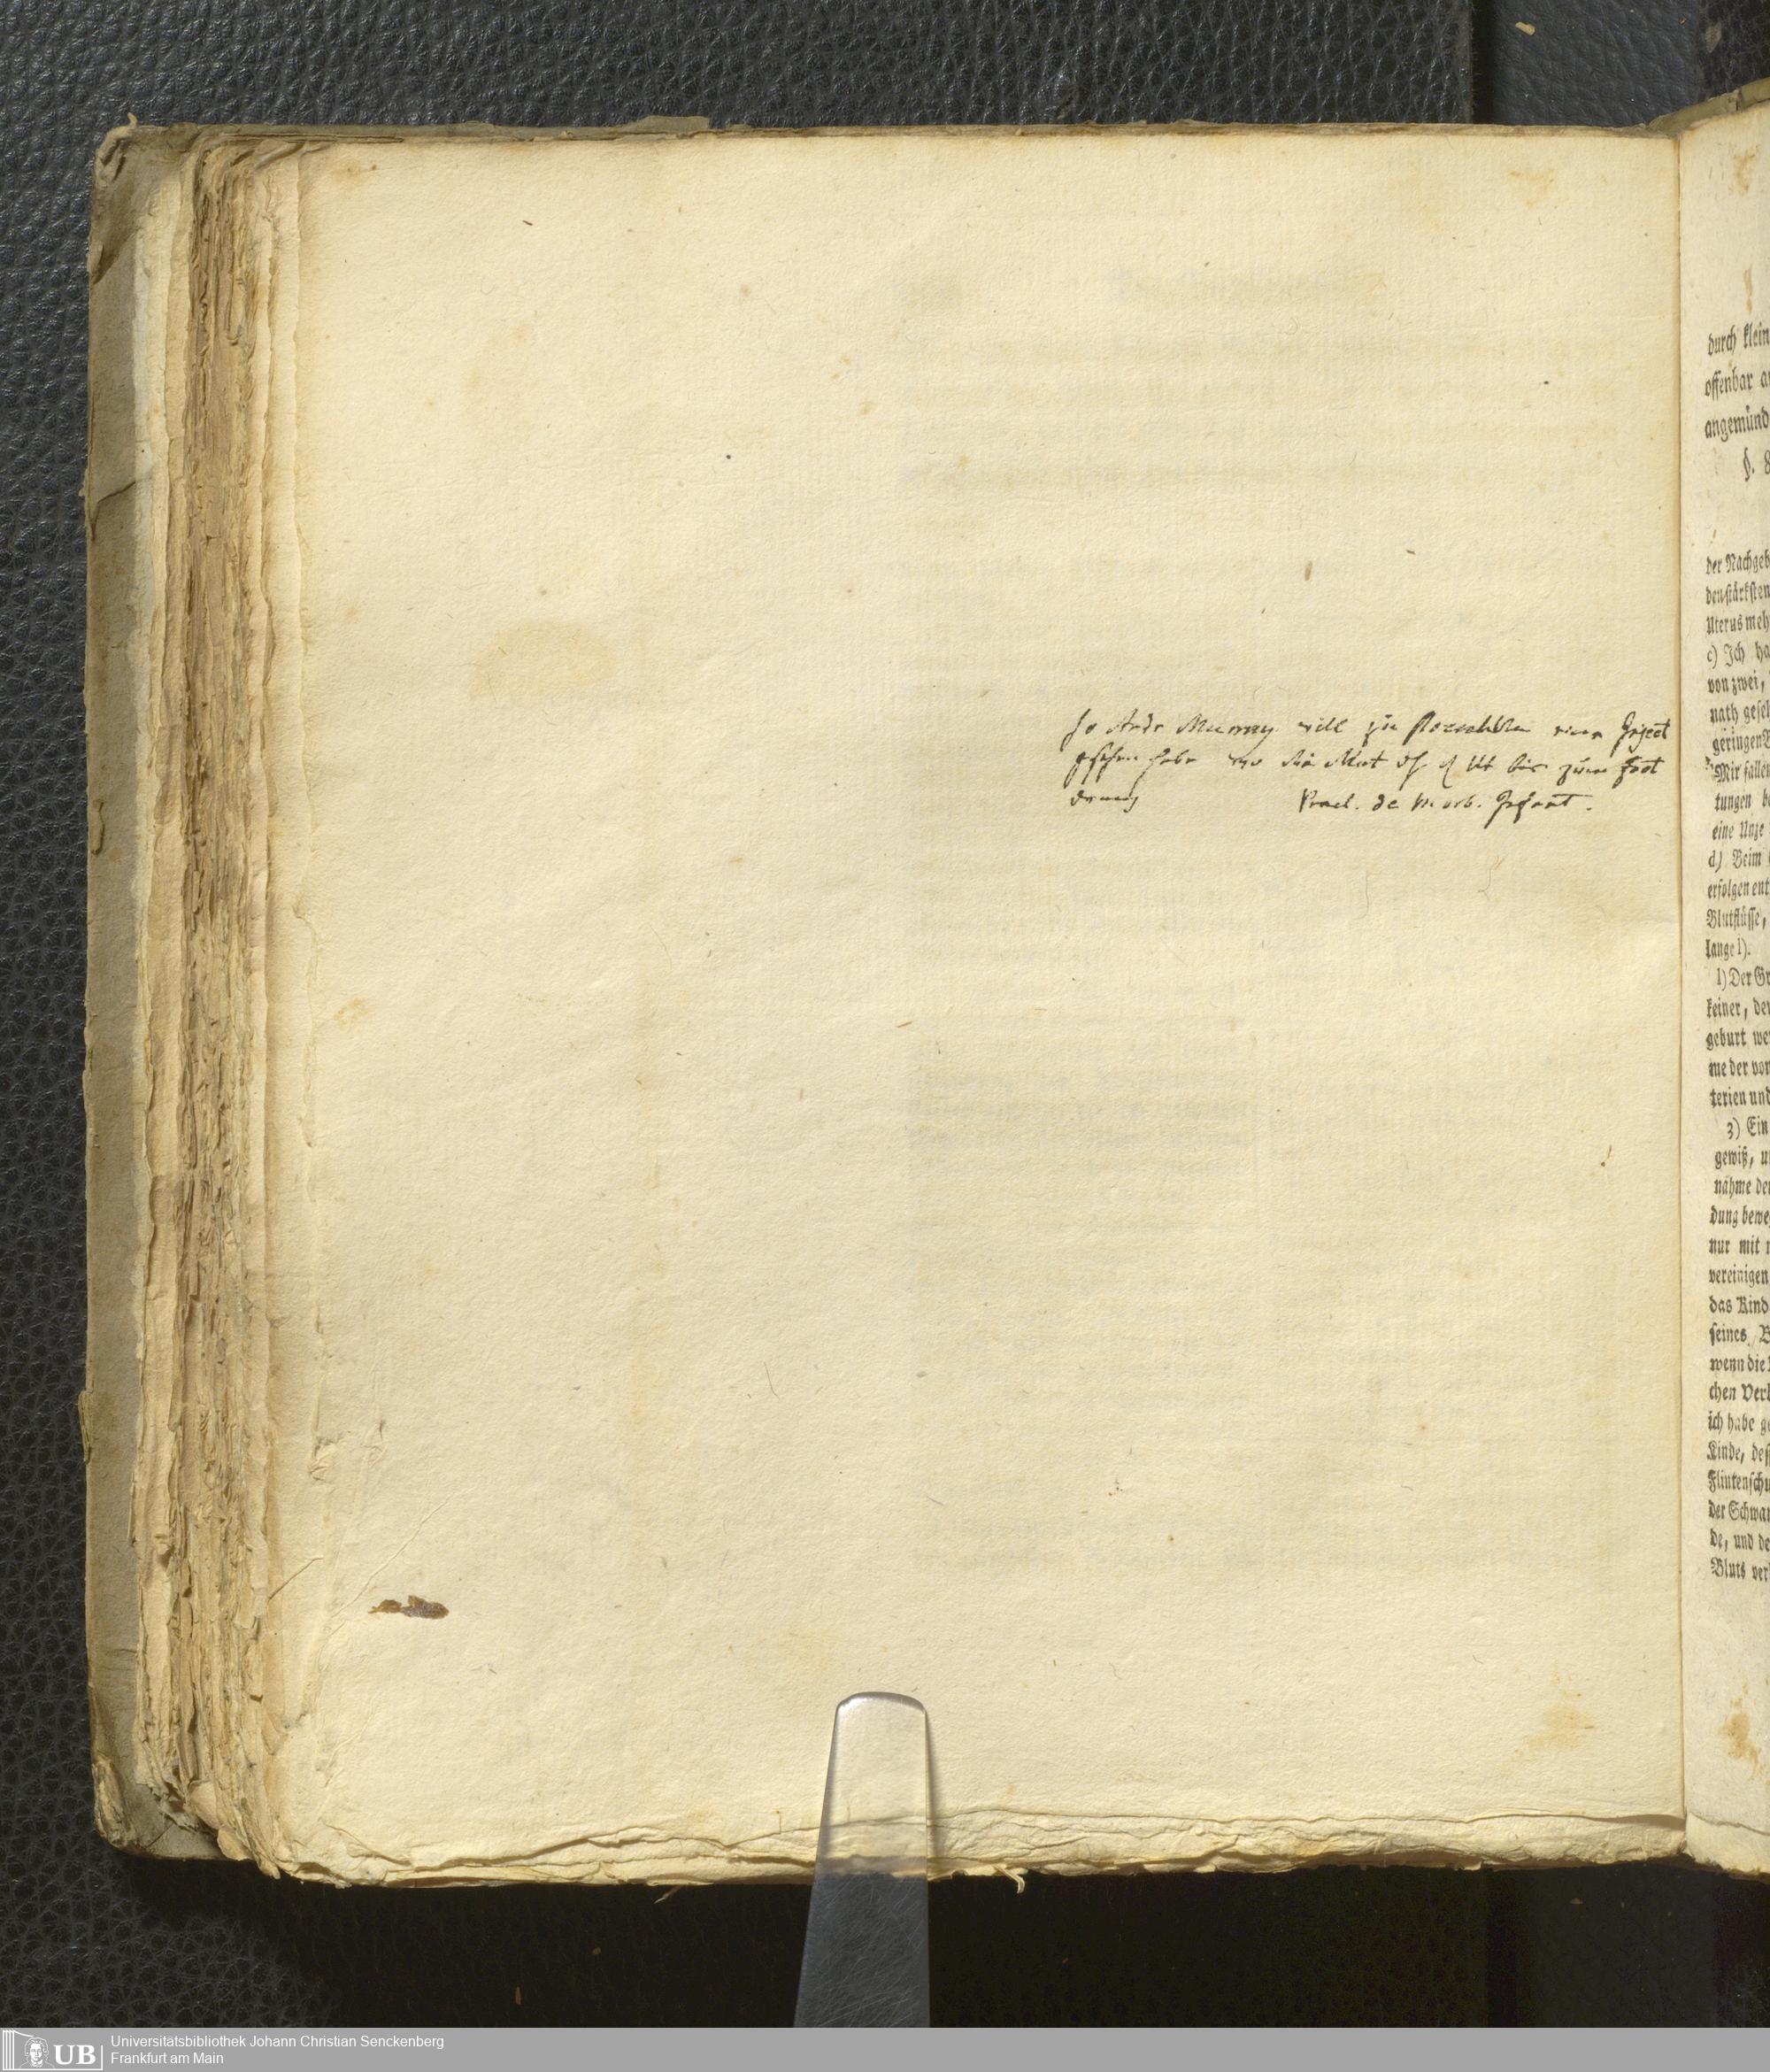 Jo Andr Murray will zu Stockholm einen Inject
gesehen habe wo die Mat d. d Ut bis zum Foet
drang Prael. de Morb. Infant.
durch klein
offenbar
angemünd
§. 8
der Nachgeb
den stärksten
Uterus meh
c) Ich ha
von zwei,
nath gese
geringen
Mir falle
tungen
eine Unze
d) Beim
erfolgen ent
Blutflüsse,
lange 1).
1) Der Gr
keiner, de
geburt we
me der von
terien und
3) Ein
gewiß, u
nahme de
dung bewe
nur mit
vereinigen
das Kind
seines B
wenn die
chen Ver
ich habe ge
Kinde, des
Flintenschu
der Schwa
de, und de
Bluts ver
UB
Universitätsbibliothek Johann Christian Senckenberg
Frankfurt am Main